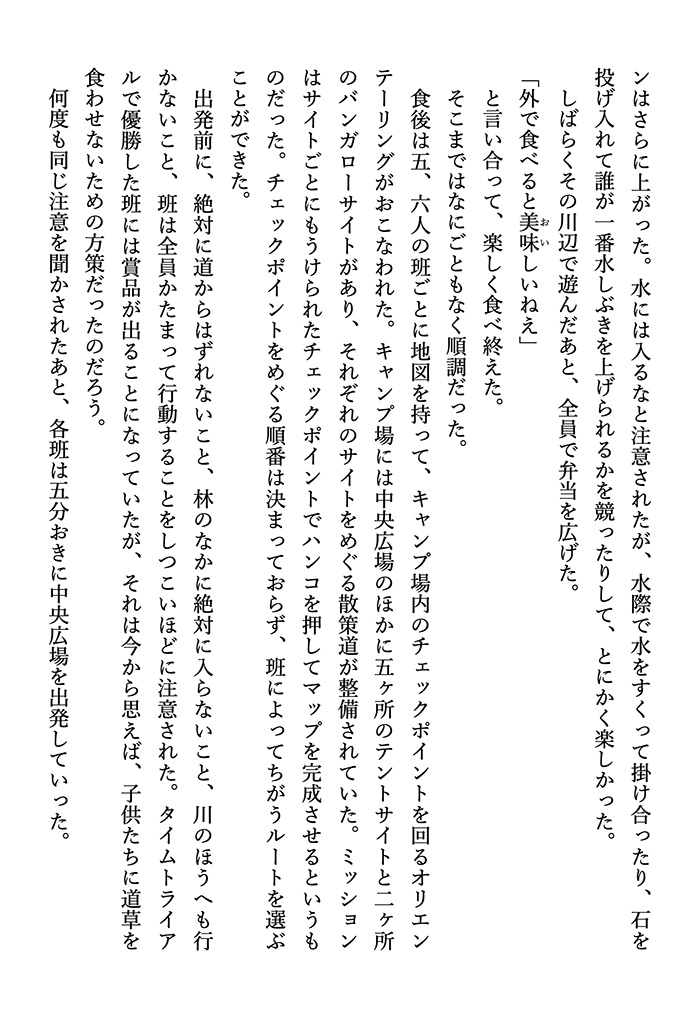 ンはさらに上がった。水には入るなと注意されたが、水際で水をすくって掛け合ったり、石を
投げ入れて誰が一番水しぶきを上げられるかを競ったりして、とにかく楽しかった。
　しばらくその川辺で遊んだあと、全員で弁当を広げた。
「外で食べると美味おいしいねえ」
　と言い合って、楽しく食べ終えた。
　そこまではなにごともなく順調だった。
　食後は五、六人の班ごとに地図を持って、キャンプ場内のチェックポイントを回るオリエン
テーリングがおこなわれた。キャンプ場には中央広場のほかに五ヶ所のテントサイトと二ヶ所
のバンガローサイトがあり、それぞれのサイトをめぐる散策道が整備されていた。ミッション
はサイトごとにもうけられたチェックポイントでハンコを押してマップを完成させるというも
のだった。チェックポイントをめぐる順番は決まっておらず、班によってちがうルートを選ぶ
ことができた。
　出発前に、絶対に道からはずれないこと、林のなかに絶対に入らないこと、川のほうへも行
かないこと、班は全員かたまって行動することをしつこいほどに注意された。タイムトライア
ルで優勝した班には賞品が出ることになっていたが、それは今から思えば、子供たちに道草を
食わせないための方策だったのだろう。
　何度も同じ注意を聞かされたあと、各班は五分おきに中央広場を出発していった。